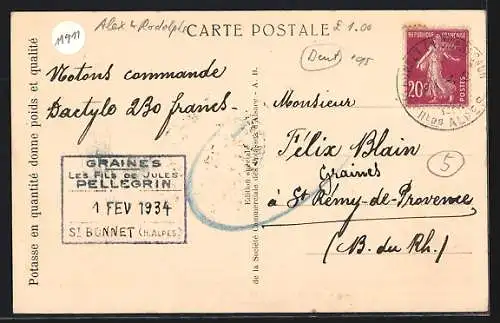 11911
Alex & Rodolphe
£1.00
CARTE POSTALE
(Dent) 95
Potasse en quantité donne poids et qualité
Notons commande
Dactylo 230 francs.
GRAINES
LES FILS DE JULES
PELLEGRIN
1 FEV 1934
ST BONNET (H. ALPES)
Edition spéciale
de la Société Commerciale des Potasses d'Alsace - A. B.
REPUBLIQUE FRANÇAISE
20c
POSTES
Htes ALPES
Monsieur
Félix Blain
Graines
à St Rémy-de-Provence
(B. du Rh.)
5